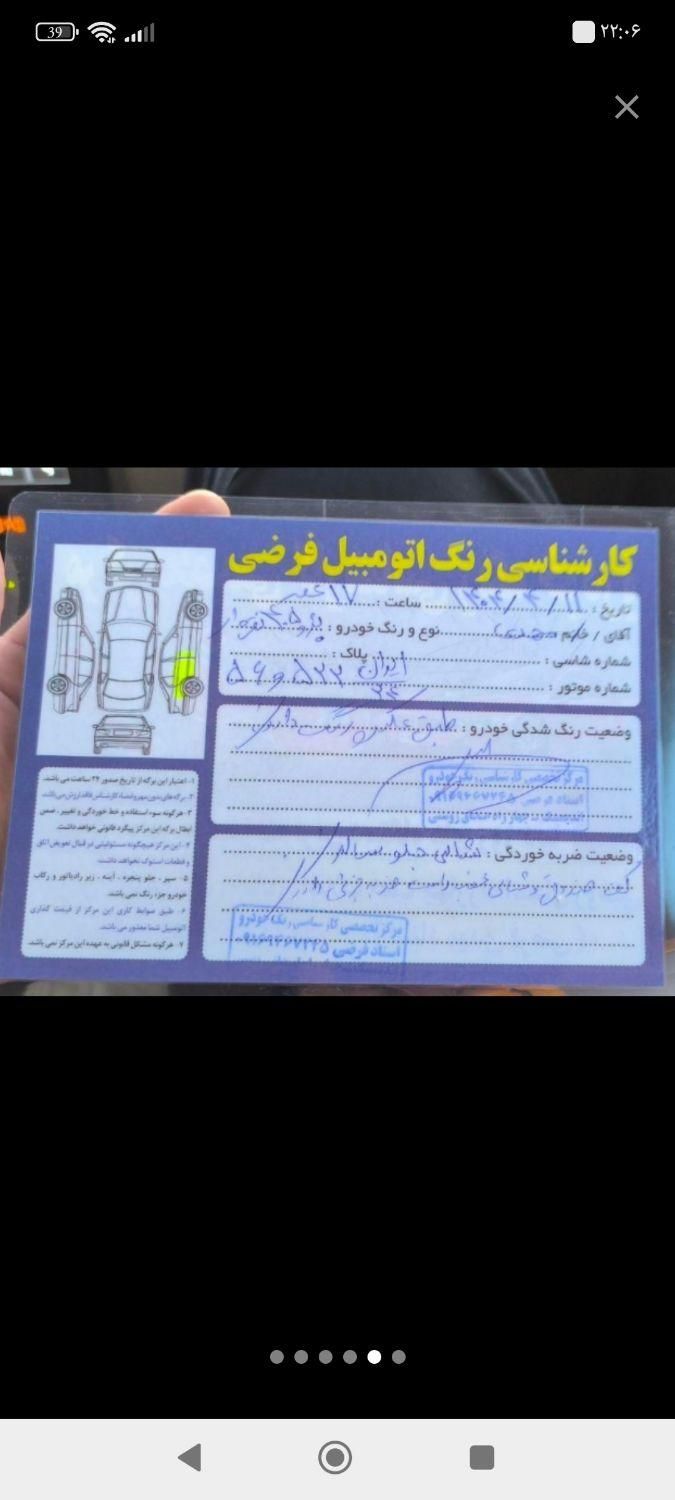 39
۲۲:۰۶
کارشناسی رنگ اتومبیل فرضی
تاریخ : ۱۴۰۴/۴/۱۱ ساعت : ۱۷ عصر
آقای / خانم نوع و رنگ خودرو : پژو ۴۰۵ نقره‌ای
شماره شاسی : پلاک : ایران
شماره موتور :
وضعیت رنگ شدگی خودرو : طبق عکس رنگ دارد
مرکز تخصصی کارشناسی رنگ خودرو
استاد فرضی
وضعیت ضربه خوردگی : شاسی جلو سالم
کف صندوق و شاسی عقب راست ضربه جزئی دارد
مرکز تخصصی کارشناسی رنگ خودرو
استاد فرضی ۰۹۱۶۹۴۶۷۲۴۵
۱- اعتبار این برگه از تاریخ صدور ۲۴ ساعت می باشد.
۲- برگه های بدون مهر و امضاء کارشناس فاقد ارزش می باشد.
۳- هرگونه سوء استفاده و خط خوردگی و تغییر، ضمن
ابطال برگه این مرکز پیگرد قانونی خواهد داشت.
۴- این مرکز هیچگونه مسئولیتی در قبال تعویض اتاق
و قطعات استوک نخواهد داشت.
۵- سپر ، جلو پنجره ، آینه ، زیر رادیاتور و رکاب
خودرو جزء رنگ نمی باشد.
۶- طبق ضوابط کاری این مرکز از قیمت گذاری
اتومبیل شما معذور می باشد.
۷- هرگونه مشکل قانونی به عهده این مرکز نمی باشد.